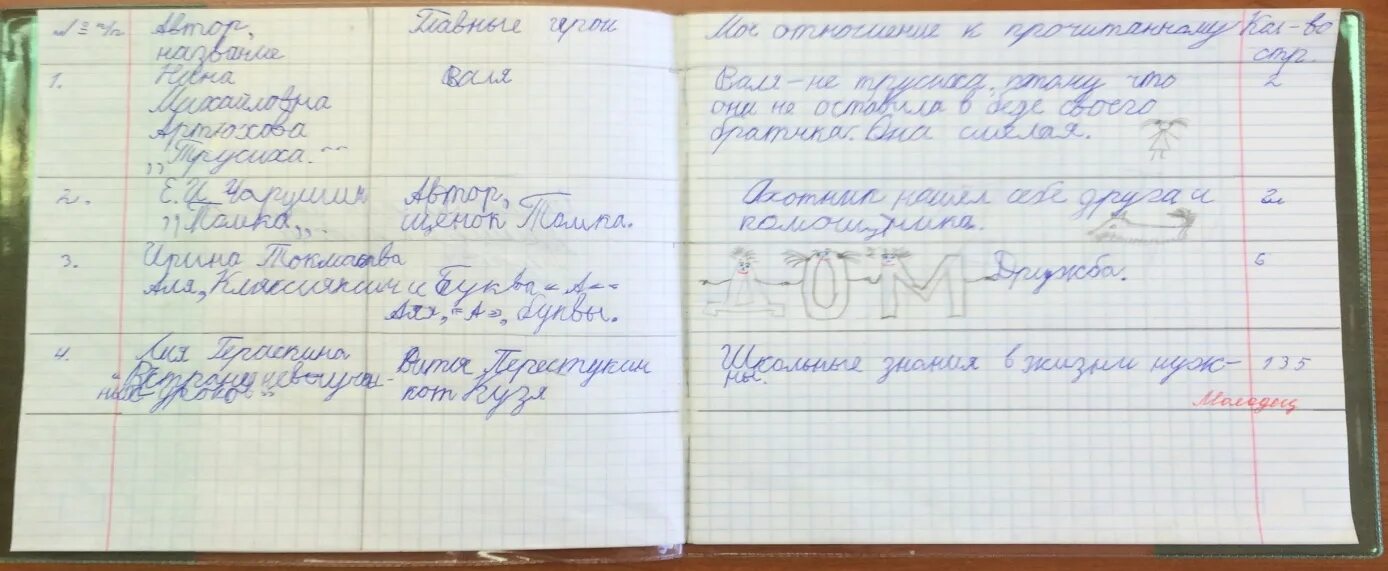 № п/п Автор, Главные герои Мое отношение к прочитанному Кол-во
название стр.
1. Нина Валя Валя - не трусиха, потому что 2
Михайловна они не оставила в беде своего
Артюхова братика. Она смелая.
„Трусиха."
2. Е.И. Чарушин Автор, Охотник нашел себе друга и
„Томка„. щенок Томка. помощника.
3. Ирина Токмакова ДОМ Дружба. 6
Аля, Кляксич и Буквы „А"
Аля, „А", буквы.
4. Лия Гераскина Витя Перестукин Школьные знания в жизни нуж- 135
„В стране невыучен- кот Кузя ны.
ных уроков" Молодец